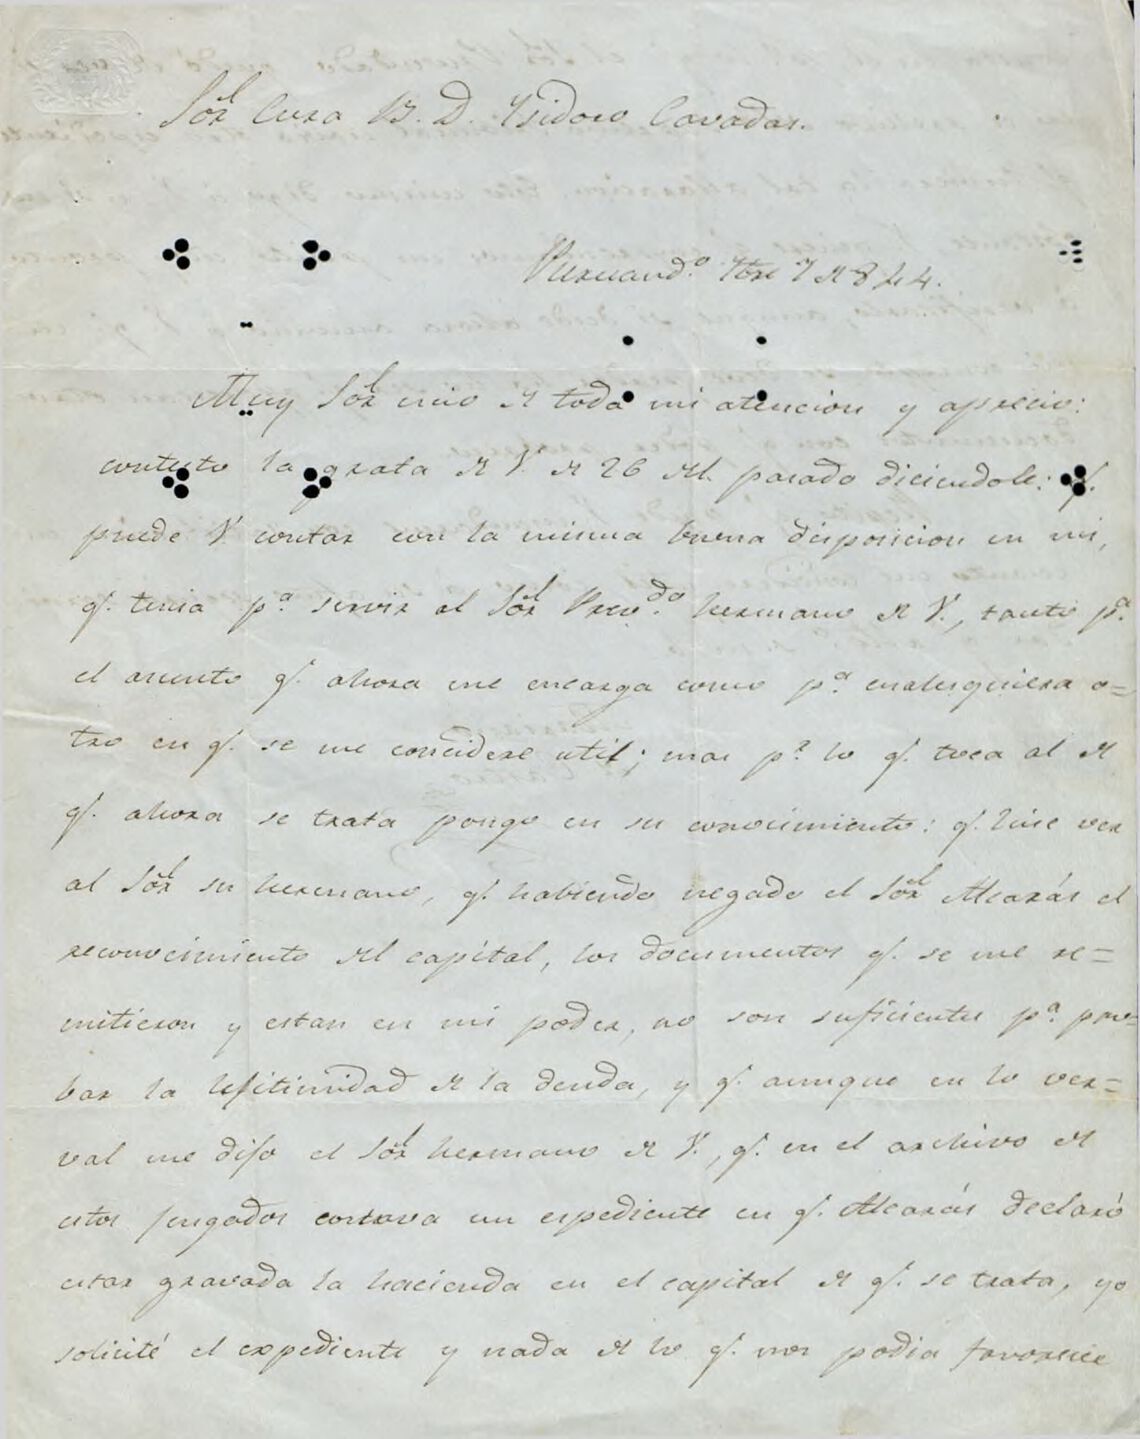 Sōr Cura B. D. Ysidoro Cavadas.
7bre 7 de 844.
Muy Sōr mio de toda mi atencion y aprecio:
contesto la grata de V. de 26 del pasado diciendole: q.
puede V contar con la misma buena disposicion en mi,
q. tenia pª. servir al Sōr hermano de V., tanto pª.
el asunto q. ahora me encarga como pª. cualesquiera o=
tro en q. se me concidere util; mas pr. lo q. toca al de
q. ahora se trata pongo en su conocimiento: q. hise ver
al Sōr su hermano, q. habiendo negado el Sōr Alcarás el
reconocimiento del capital, los documentos q. se me re=
mitieron y estan en mi poder, no son suficientes pª. pro=
bar la lejitimidad de la deuda, y q. aunque en lo ver=
val me dijo el Sōr hermano de V., q. en el archivo de
estos jusgados constava un espediente en q. Alcarás declaró
estar gravada la hacienda en el capital de q. se trata, yo
solicité el expediente y nada de lo q. nos podia favorecer